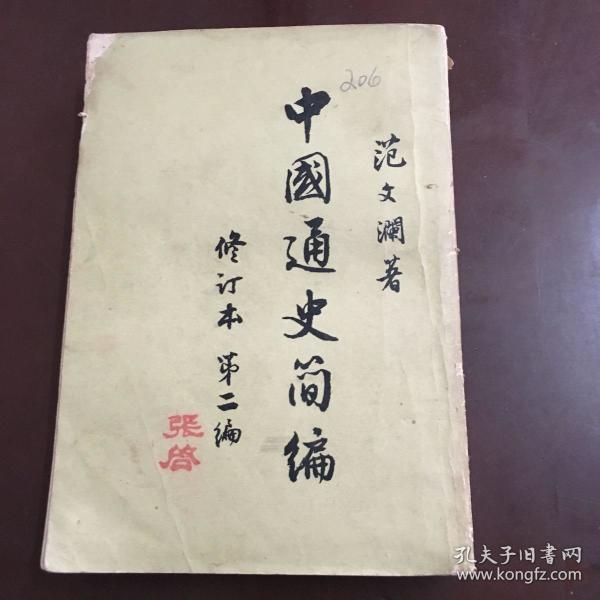 206
范文瀾著
中國通史簡編
修订本 第二编
张啓
孔夫子旧書网
www.kongfz.com